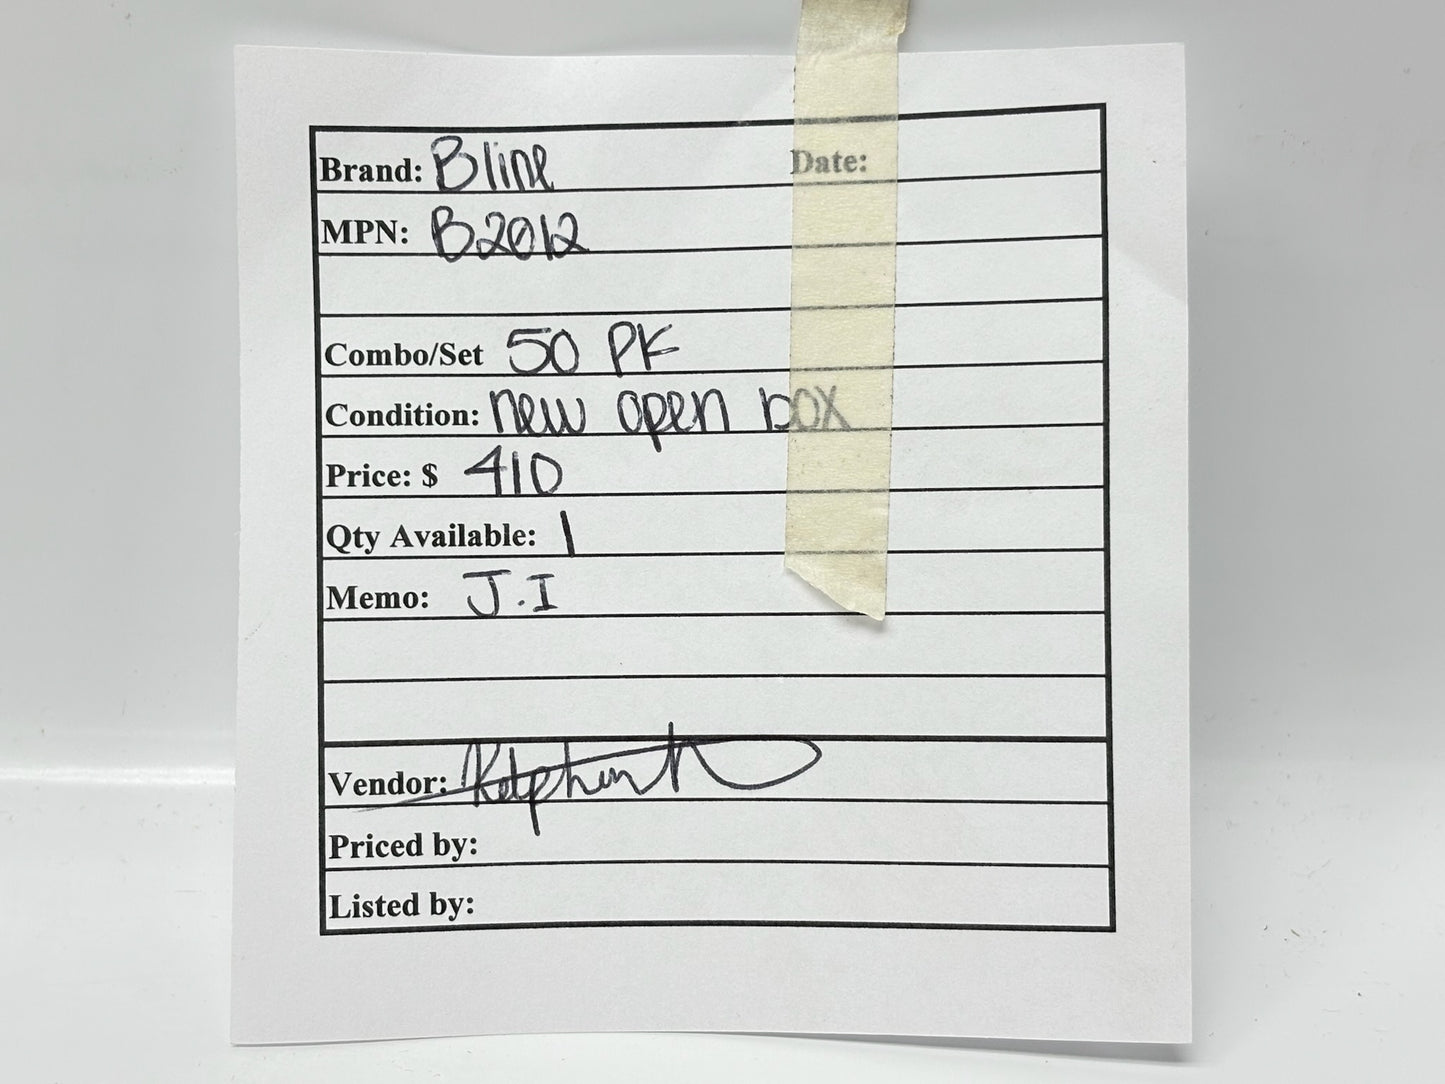 Brand: Bline Date:
MPN: B2012
Combo/Set 50 PK
Condition: new open box
Price: $ 410
Qty Available: 1
Memo: J.I
Vendor:
Priced by:
Listed by: